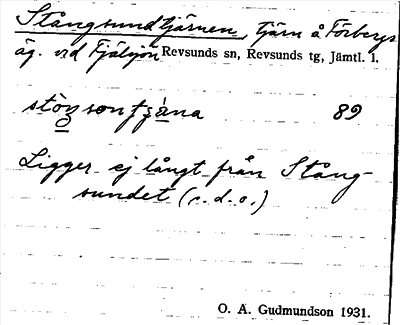 Stångsundtjärnen, tjärn å Forbergs
äg. vid Fjälsjön Revsunds sn, Revsunds tg, Jämtl. l.
89
Ligger ej långt från Stång-
sundet (c.d.o.)
O. A. Gudmundson 1931.